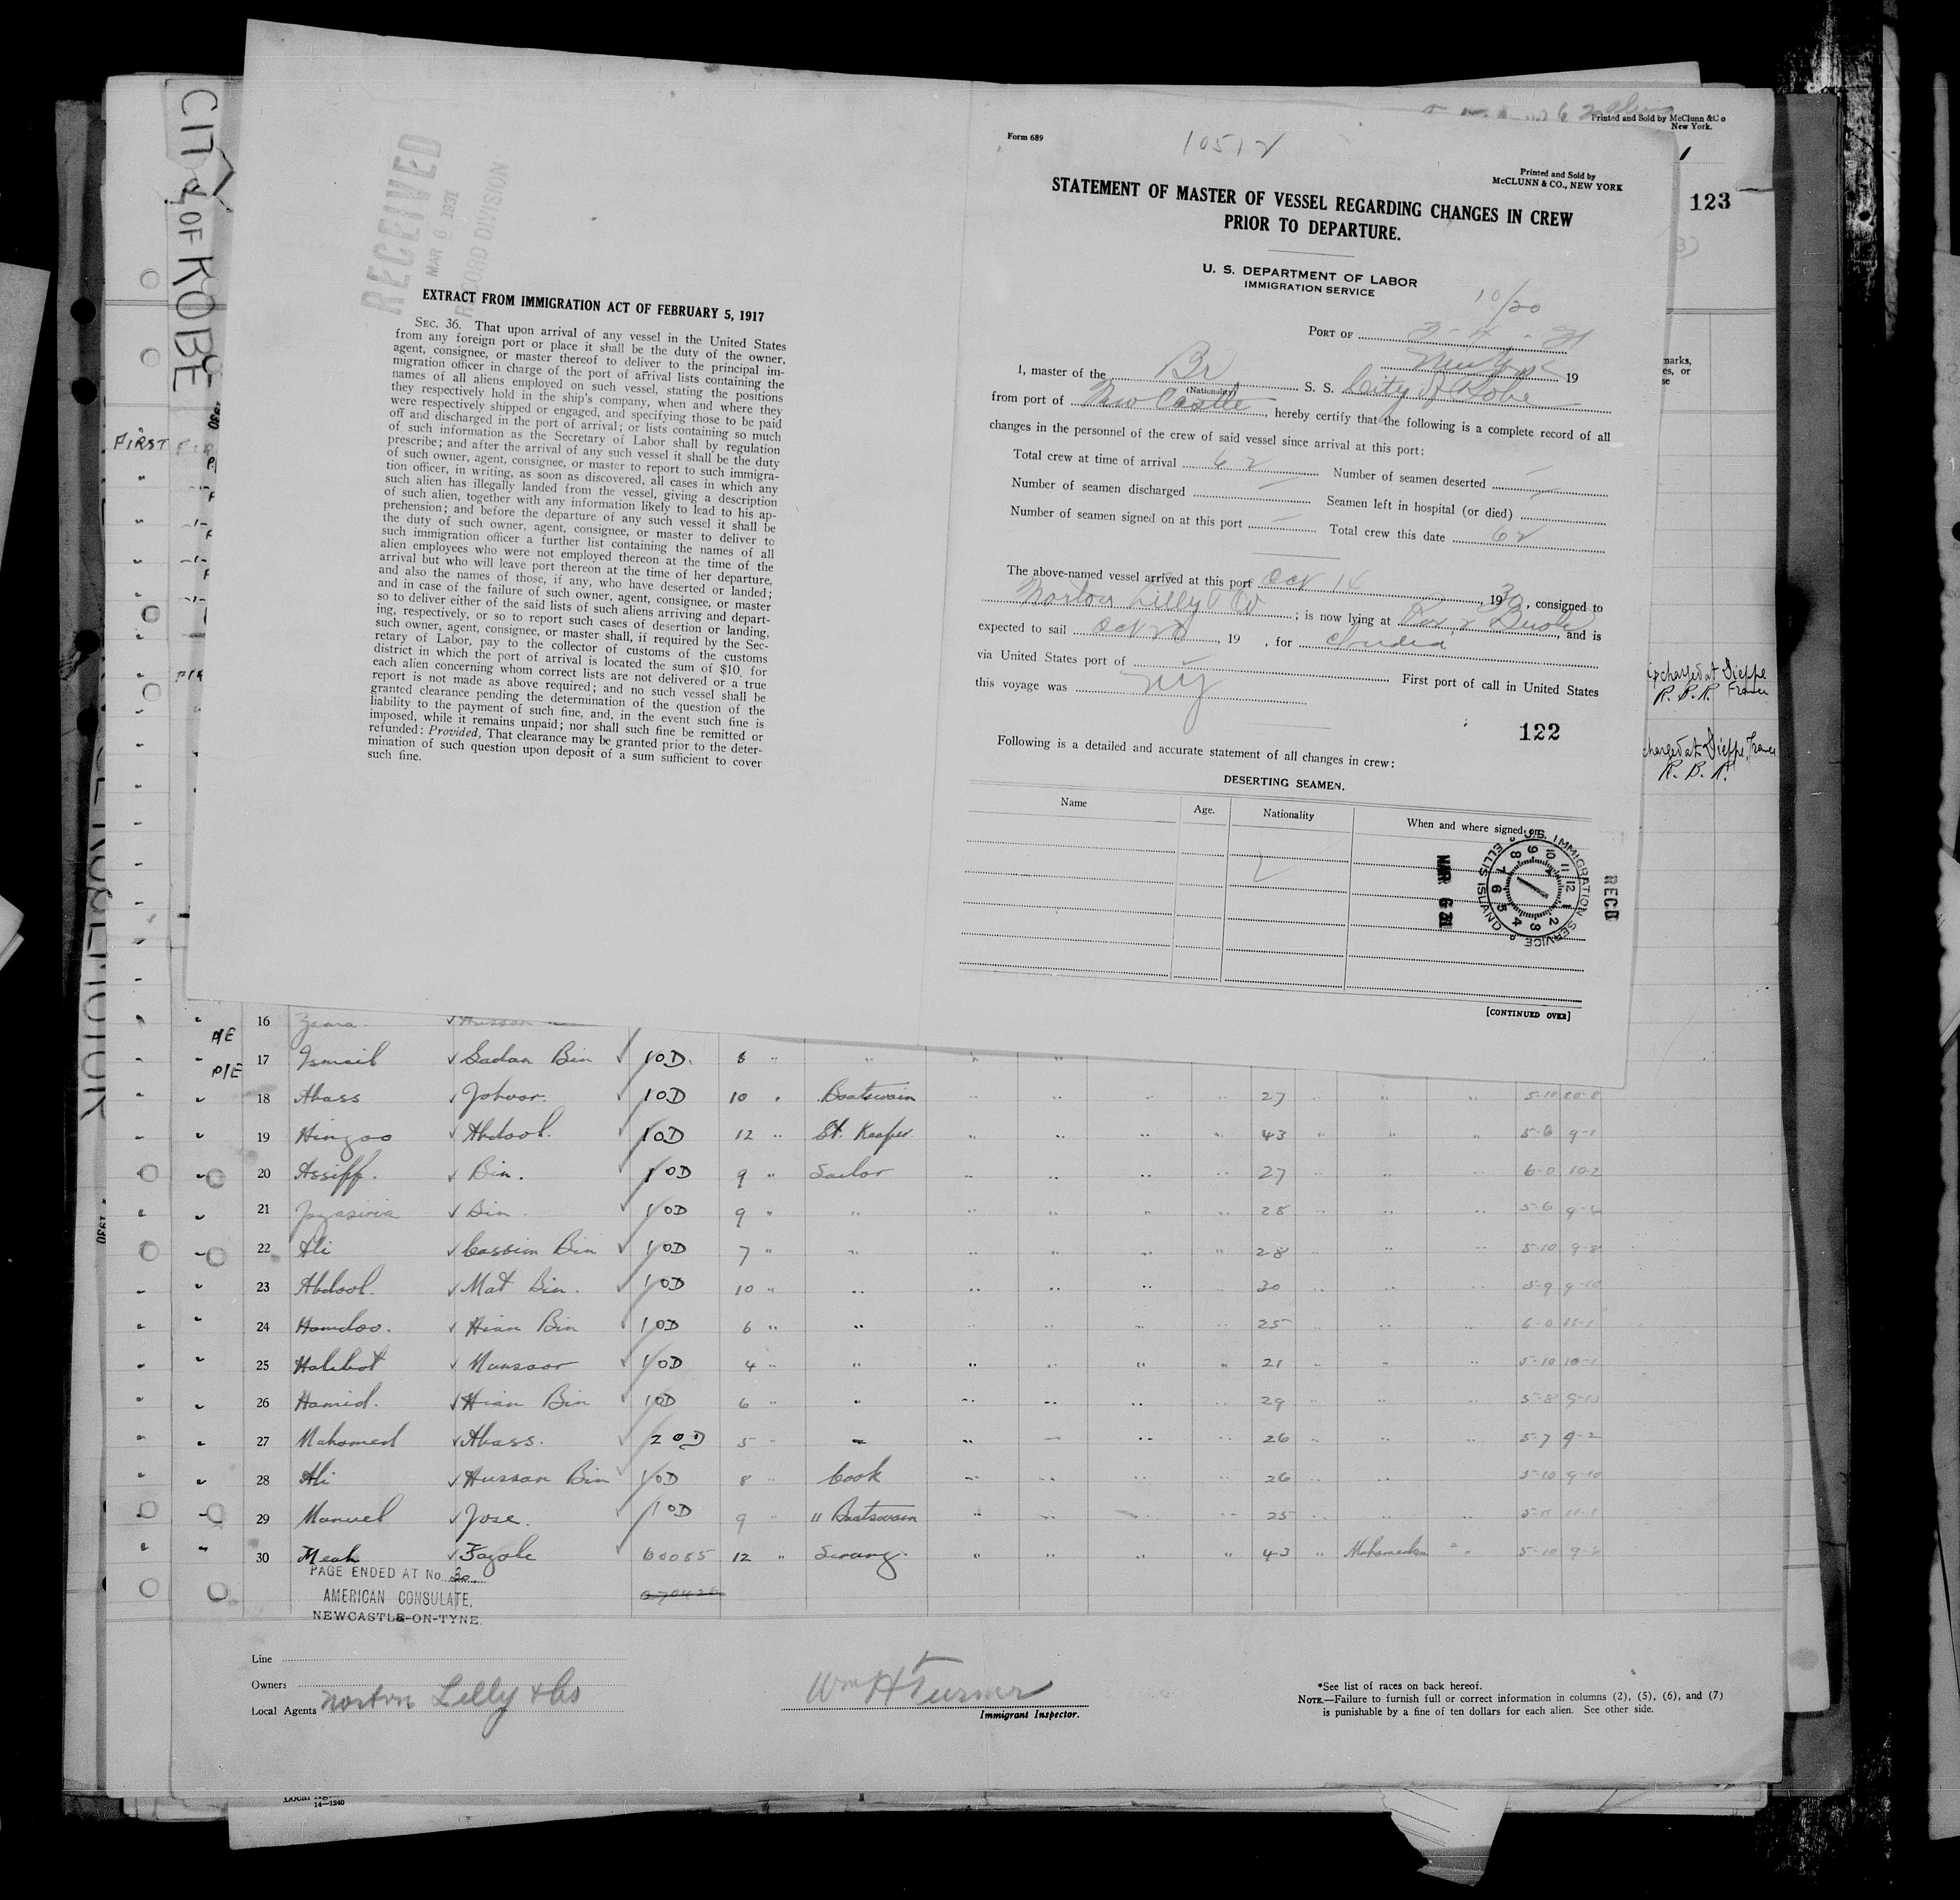 CITY OF KOBE
FIRST
RECEIVED
MAR 6 1931
RECORD DIVISION
EXTRACT FROM IMMIGRATION ACT OF FEBRUARY 5, 1917
SEC. 36. That upon arrival of any vessel in the United States
from any foreign port or place it shall be the duty of the owner,
agent, consignee, or master thereof to deliver to the principal im-
migration officer in charge of the port of arrival lists containing the
names of all aliens employed on such vessel, stating the positions
they respectively hold in the ship's company, when and where they
were respectively shipped or engaged, and specifying those to be paid
off and discharged in the port of arrival; or lists containing so much
of such information as the Secretary of Labor shall by regulation
prescribe; and after the arrival of any such vessel it shall be the duty
of such owner, agent, consignee, or master to report to such immigra-
tion officer, in writing, as soon as discovered, all cases in which any
such alien has illegally landed from the vessel, giving a description
of such alien, together with any information likely to lead to his ap-
prehension; and before the departure of any such vessel it shall be
the duty of such owner, agent, consignee, or master to deliver to
such immigration officer a further list containing the names of all
alien employees who were not employed thereon at the time of the
arrival but who will leave port thereon at the time of her departure,
and also the names of those, if any, who have deserted or landed;
and in case of the failure of such owner, agent, consignee, or master
so to deliver either of the said lists of such aliens arriving and depart-
ing, respectively, or so to report such cases of desertion or landing,
such owner, agent, consignee, or master shall, if required by the Sec-
retary of Labor, pay to the collector of customs of the customs
district in which the port of arrival is located the sum of $10 for
each alien concerning whom correct lists are not delivered or a true
report is not made as above required; and no such vessel shall be
granted clearance pending the determination of the question of the
liability to the payment of such fine, and, in the event such fine is
imposed, while it remains unpaid; nor shall such fine be remitted or
refunded: Provided, That clearance may be granted prior to the deter-
mination of such question upon deposit of a sum sufficient to cover
such fine.
Printed and Sold by McClunn & Co
New York.
123
Form 689
10512
Printed and Sold by
McCLUNN & CO., NEW YORK
STATEMENT OF MASTER OF VESSEL REGARDING CHANGES IN CREW
PRIOR TO DEPARTURE.
U. S. DEPARTMENT OF LABOR
IMMIGRATION SERVICE
10/20
PORT OF 3-4-31
New York 19
I, master of the Br S. S. City of Kobe
(Nationality)
from port of New Castle, hereby certify that the following is a complete record of all
changes in the personnel of the crew of said vessel since arrival at this port:
Total crew at time of arrival 62 Number of seamen deserted –
Number of seamen discharged – Seamen left in hospital (or died) –
Number of seamen signed on at this port – Total crew this date 62
The above-named vessel arrived at this port Oct 14, 1930, consigned to
Norton Lilly & Co; is now lying at Pier 2 Bush, and is
expected to sail Oct 20, 19 , for India
via United States port of – First port of call in United States
this voyage was NY
122
Following is a detailed and accurate statement of all changes in crew:
DESERTING SEAMEN.
Name Age. Nationality When and where signed on
U.S. IMMIGRATION SERVICE ELLIS ISLAND
RECD
MAR 6 31
[CONTINUED OVER]
marks,
es, or
se
charged at Dieppe
R. B. R. France
charged at Dieppe, France
R. B. R.
16 Hussan
P/E
17 Ismail Sadan Bin 10D. 8 "
P/E
18 Abass Johoor. 10D 10 " Boatswain 27 5-10 10-8
19 Hingoo Abdool. 10D 12 " St. Keeper 43 5-6 9-1
20 Assiff. Bin. 10D 9 " Sailor 27 6-0 10-2
21 Bin 10D 9 " " 28 5-6
22 Ali Cassim Bin 10D 7 " " 28 5-10 9-8
23 Abdool. Mat Bin. 10D 10 " " 30 5-9 9-10
24 Hamdoo. Hian Bin 10D 6 " " 25 6-0 11-1
25 Halibot Munsoor 10D 4 " " 21 5-10 10-1
26 Hamid. Hian Bin 10D 6 " " 29 5-8
27 Mahomed Abass. 20D 5 " " 26 5-7 9-2
28 Ali Hussan Bin 10D 8 " Cook 26 5-10 9-10
29 Manuel Jose. 10D 9 " " Boatswain 25
30 Meah Fazole 60085 12 " Serang. 43 " Mahomedan 5-10
PAGE ENDED AT No. 30
AMERICAN CONSULATE,
NEWCASTLE-ON-TYNE.
Line
Owners
Local Agents Norton Lilly & Co
Wm H Turner
Immigrant Inspector.
*See list of races on back hereof.
NOTE.—Failure to furnish full or correct information in columns (2), (5), (6), and (7)
is punishable by a fine of ten dollars for each alien. See other side.
14—1240